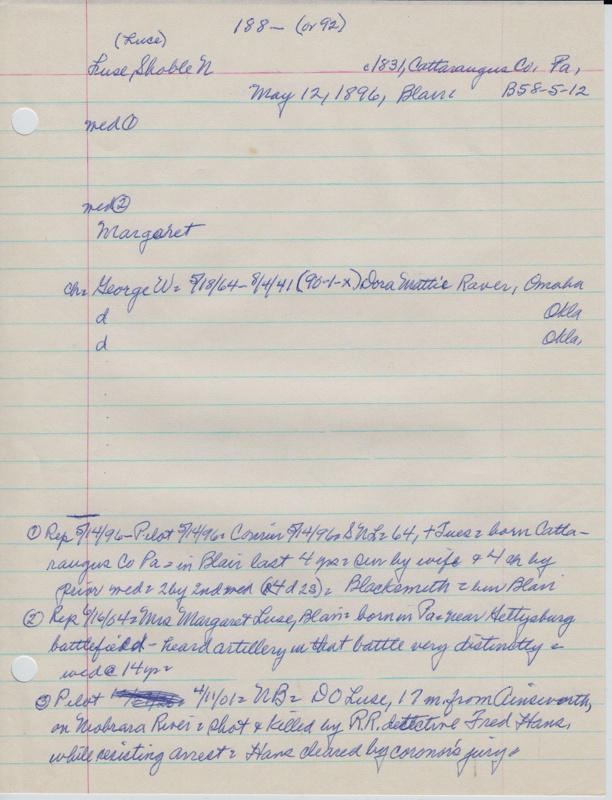 188- (or 92)
(Luse)
Luse, Shoble N c1831, Cattaraugus Co, Pa,
May 12, 1896, Blair B58-5-12
med ①
med ②
Margaret
ch= George W= 5/18/64-8/4/41 (90-1-x) Dora Mattie Raver, Omaha
d Okla
d Okla,
① Rep 5/14/96- Pilot 5/14/96= Courier 5/14/96= S N L= 64, + Tues= born Catta-
raugus Co Pa= in Blair last 4 yrs= sur by wife + 4 ch by
prior med= 2 by 2nd med (4 d 2s)= Blacksmith= bur Blair
② Rep 9/16/04= Mrs Margaret Luse, Blair= born in Pa= near Gettysburg
battlefield- heard artillery in that battle very distinctly=
wed @ 14 yr=
③ Pilot 4/11/01= NB= D O Luse, 17 m. from Ainsworth,
on Niobrara River= shot + killed by R.R. detective Fred Hans,
while resisting arrest= Hans cleared by coronor's jury=